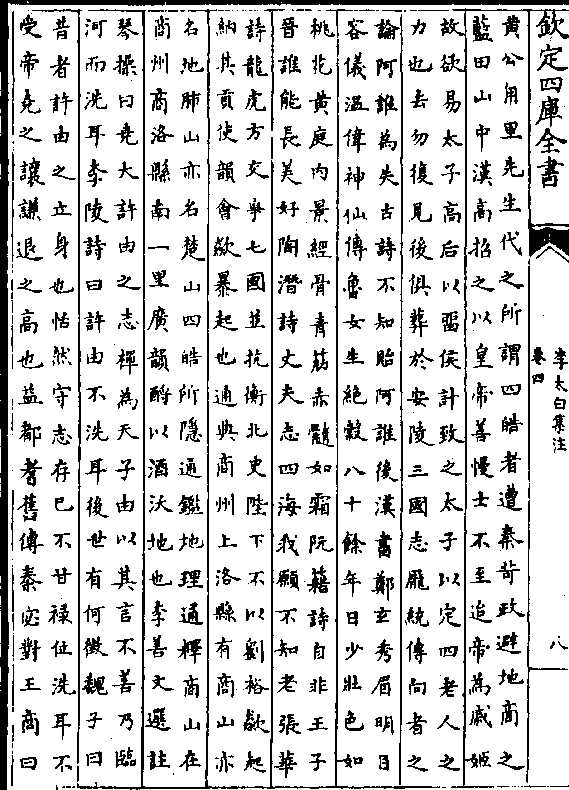 欽定四庫全書
李太白集注
卷四
八
黄公甪里先生代之所謂四皓者遭秦苛政避地商之
藍田山中漢高招之以皇帝善慢士不至迨帝為戚姬
故欲易太子高后以畱侯計致之太子以定四老人之
力也去勿復見後俱葬於安陵三國志龎統傳向者之
論阿誰為失古詩不知貽阿誰後漢書鄭玄秀眉明目
容儀温偉神仙傳魯女生絶穀八十餘年日少壯色如
桃花黄庭内景經骨青筋赤髓如霜阮籍詩自非王子
晉誰能長美好陶潛詩丈夫志四海我願不知老張華
詩龍虎方交爭七國並抗衡北史陛下不以劉裕歘起
納其貢使韻會歘暴起也通典商州上洛縣有商山亦
名地肺山亦名楚山四皓所隱通鑑地理通釋商山在
商州商洛縣南一里廣韻酹以酒沃地也李善文選註
琴操曰堯大許由之志禪為天子由以其言不善乃臨
河而洗耳李陵詩曰許由不洗耳後世有何徵魏子曰
昔者許由之立身也恬然守志存已不甘禄位洗耳不
受帝堯之讓謙退之高也益都耆舊傳秦宓對王商曰